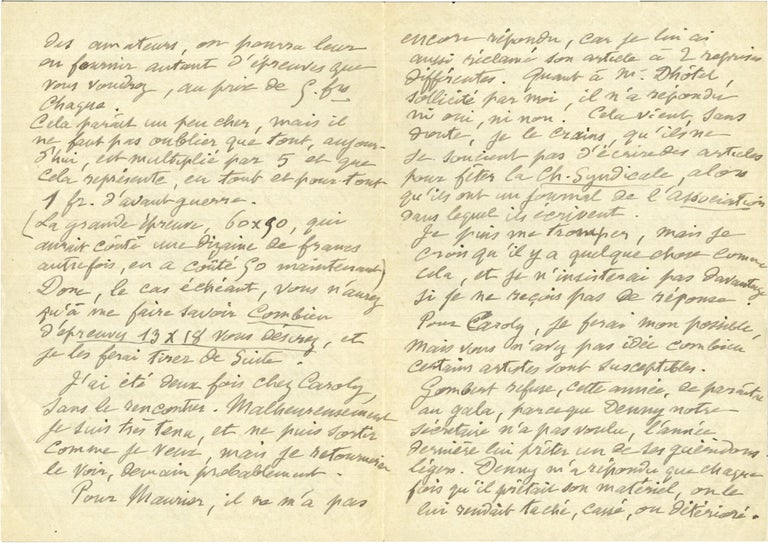 des amateurs, on pourra leur
en fournir autant d'épreuves que
vous voudrez, au prix de 5. frs
Chaque.
Cela paraît un peu cher, mais il
ne faut pas oublier que tout, aujour-
d'hui, est multiplié par 5 et que
Cela représente, en tout et pour tout
1 fr. d'avant guerre.
(La grande épreuve, 60x50, qui
aurait coûté une dizaine de francs
autrefois, en a coûté 50 maintenant)
Donc, le cas échéant, vous n'aurez
qu'à me faire savoir Combien
d'épreuves 13 x 18 vous désirez, et
je les ferai tirer de Suite.
J'ai été deux fois chez Caroly,
sans le rencontrer. Malheureusement
je suis très tenu, et ne puis sortir
comme je veux, mais je retournerai
le voir, demain probablement.
Pour Maurier, il ne m'a pas
encore répondu, car je lui ai
aussi réclamé son article à 2 reprises
différentes. Quant à M. Dhôtel,
sollicité par moi, il n'a répondu
ni oui, ni non. Cela vient, sans
doute, je le crains, qu'ils ne
se soucient pas d'écrire des articles
pour fêter la Ch. Syndicale, alors
qu'ils ont un journal de l'Association
dans lequel ils écrivent.
Je puis me tromper, mais je
crois qu'il y a quelque chose comme
cela, et je n'insisterai pas davantage
si je ne reçois pas de réponse.
Pour Caroly, je ferai mon possible,
mais vous n'avez pas idée combien
certains artistes sont susceptibles.
Gombert refuse, cette année, de paraître
au gala, parceque Denny notre
secrétaire n'a pas voulu, l'année
dernière lui prêter un de ses guéridons
légers. Denny m'a répondu que chaque
fois qu'il prêtait son matériel, on le
lui rendait taché, cassé, ou détérioré.